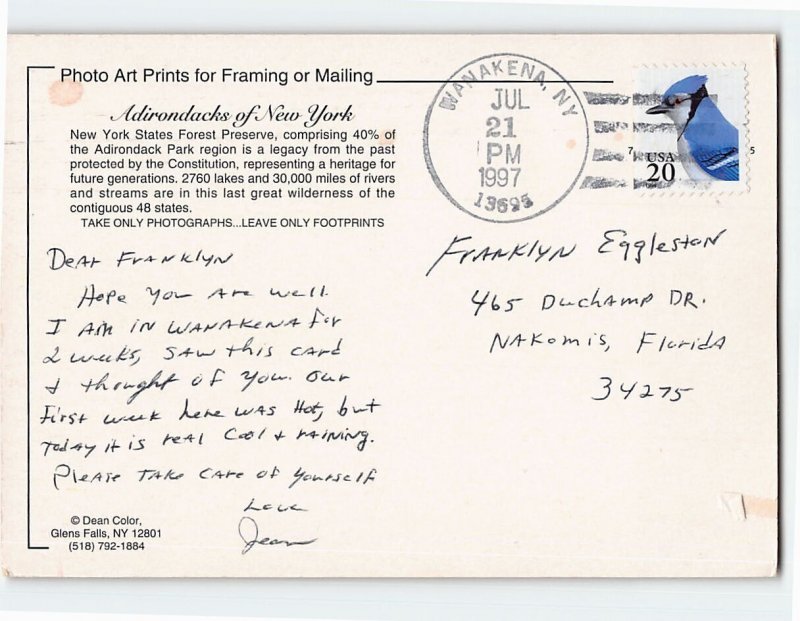 Photo Art Prints for Framing or Mailing
Adirondacks of New York
New York States Forest Preserve, comprising 40% of
the Adirondack Park region is a legacy from the past
protected by the Constitution, representing a heritage for
future generations. 2760 lakes and 30,000 miles of rivers
and streams are in this last great wilderness of the
contiguous 48 states.
TAKE ONLY PHOTOGRAPHS...LEAVE ONLY FOOTPRINTS
WANAKENA, NY
JUL
21
PM
1997
13695
USA
20
Dear Franklyn
Hope you are well.
I am in Wanakena for
2 weeks, saw this card
& thought of you. Our
first week here was Hot, but
today it is real cool & raining.
Please take care of yourself
Love
Jean
Franklyn Eggleston
465 Duchamp Dr.
Nakomis, Florida
34275
© Dean Color,
Glens Falls, NY 12801
(518) 792-1884